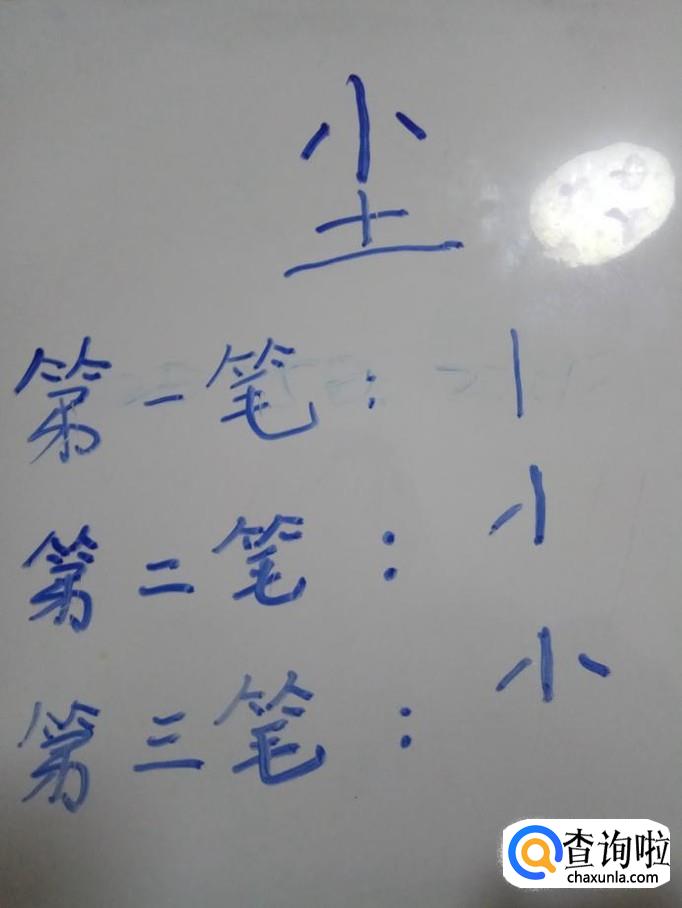 尘
第一笔：丨
第二笔：小
第三笔：小
查询啦
chaxunla.com